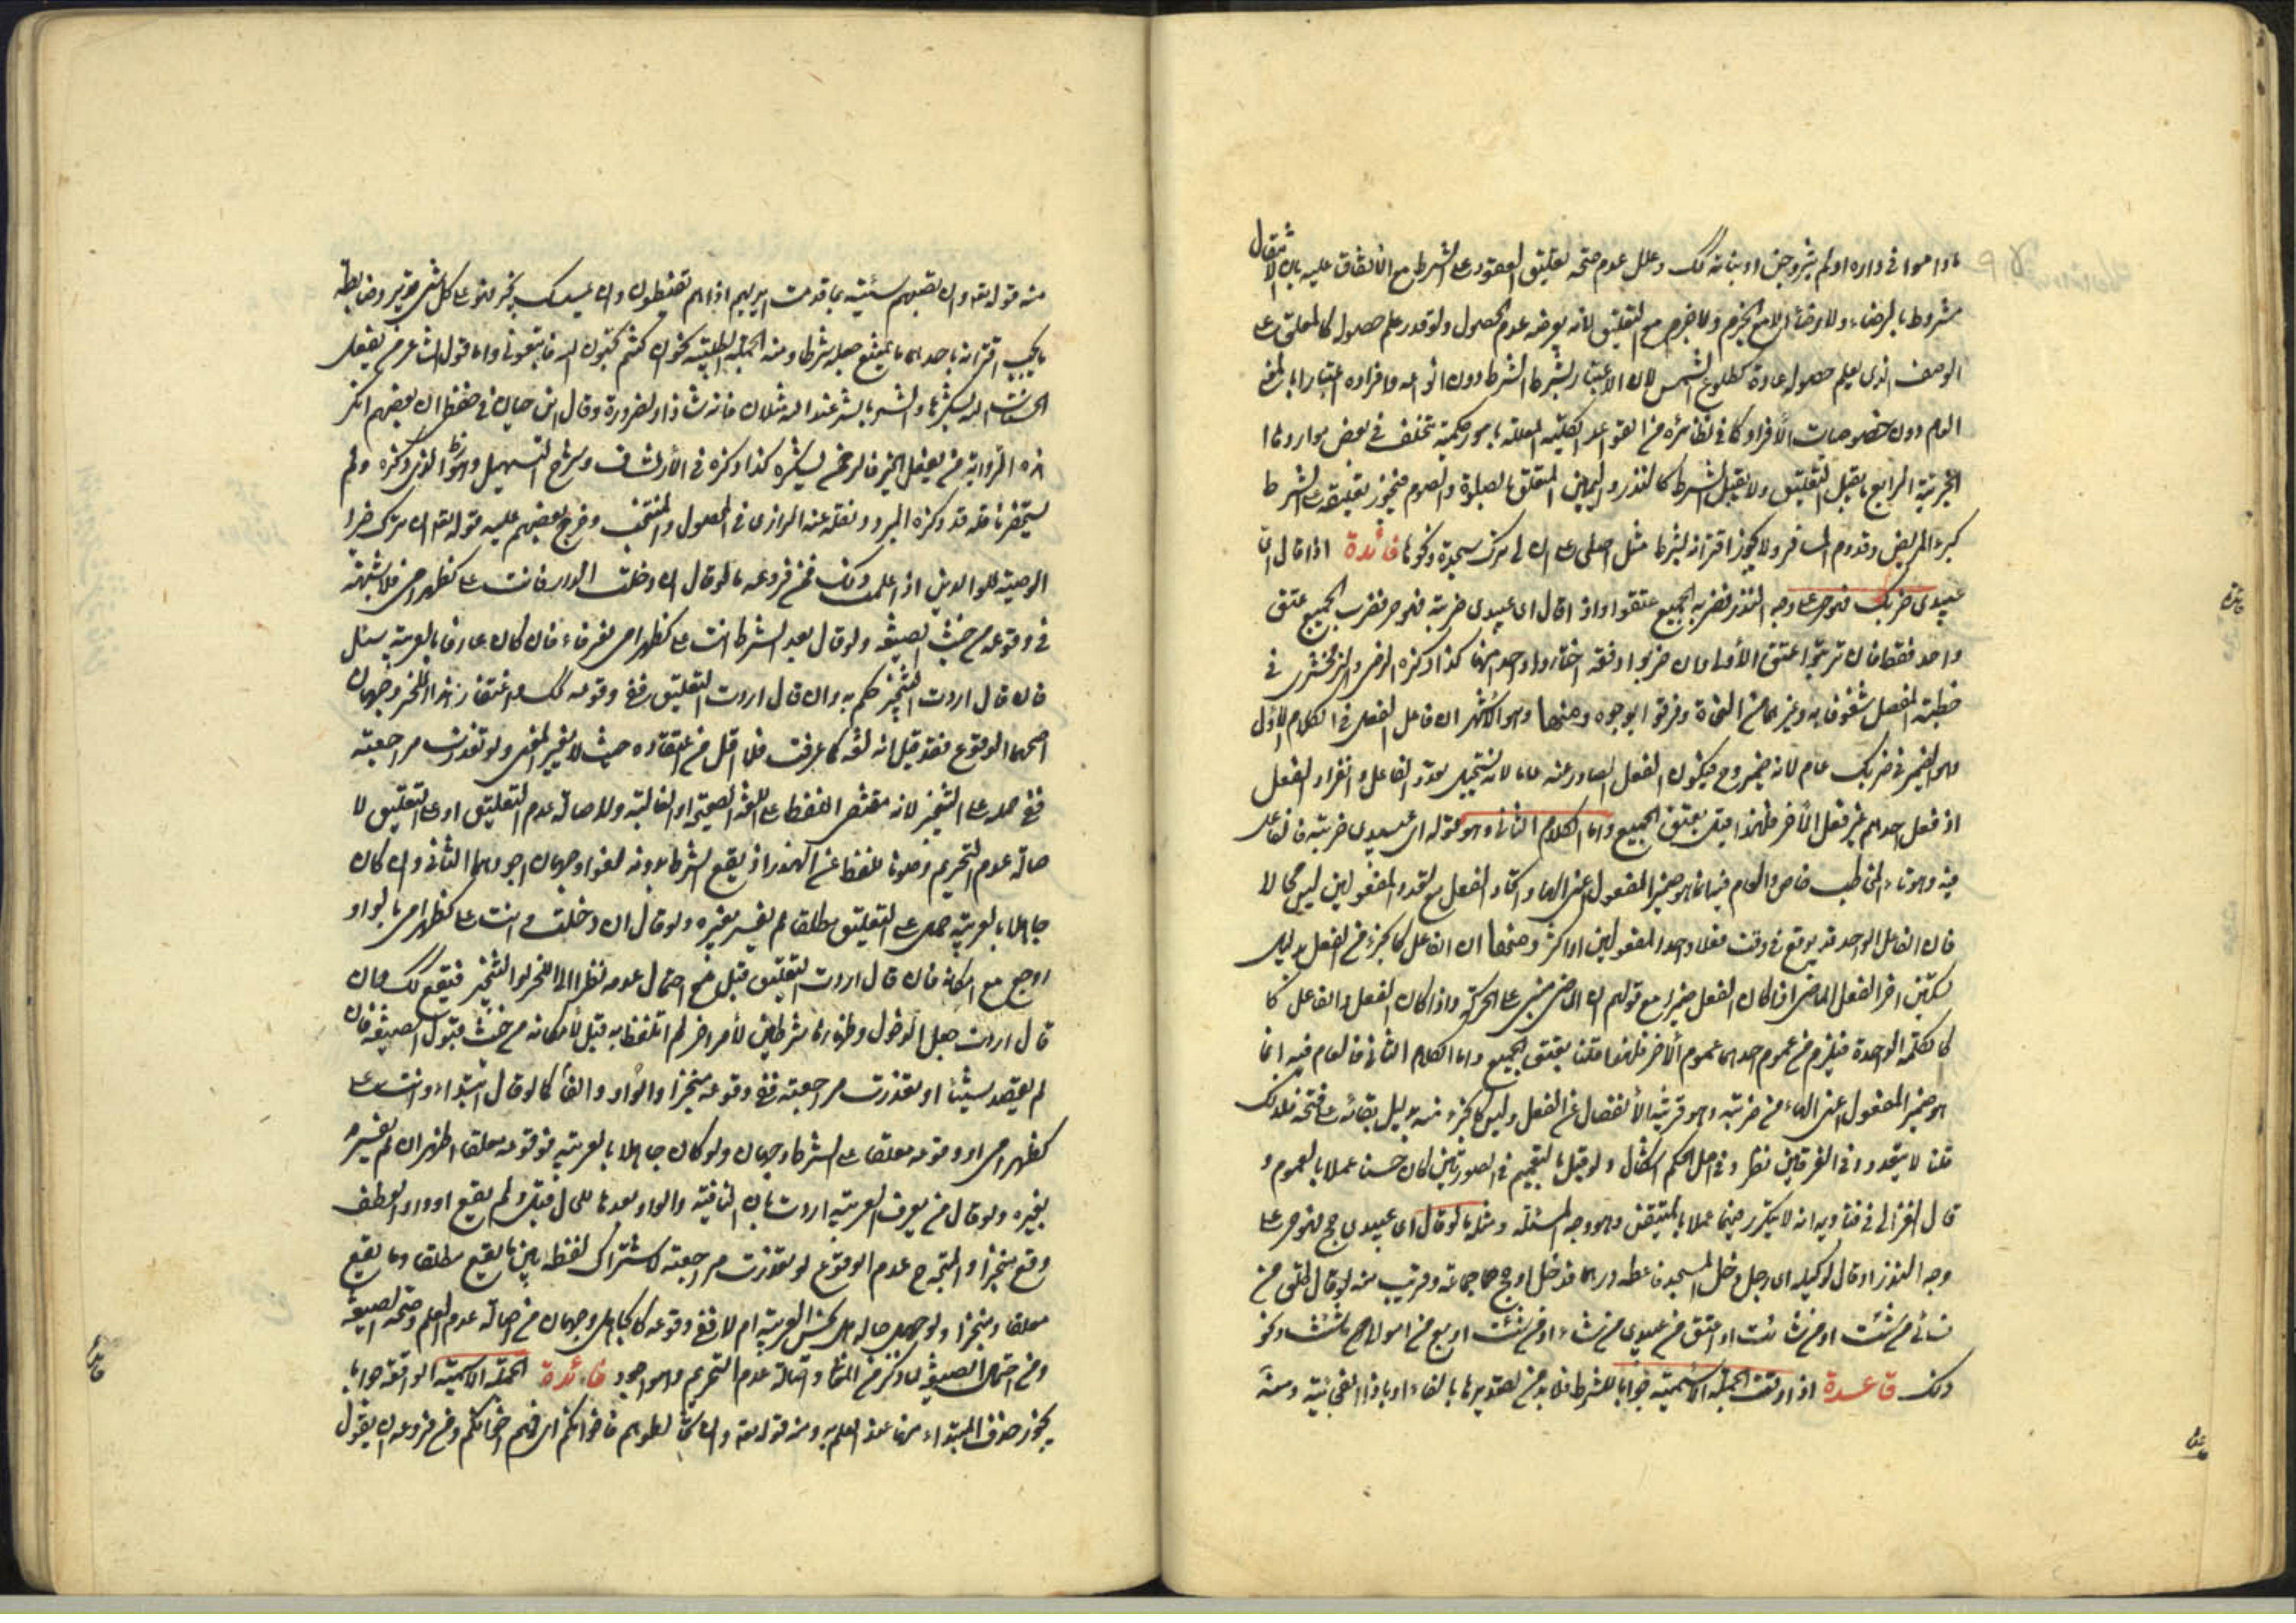 مادامو في داره او لم يتزوجن او بناته ذلك وعلل عدم صحة تعليق العقود على الشرط مع الاتفاق عليه بان الانتقال
مشروط بالرضاء ولا رضاء الا مع الجزم ولا جزم مع التعليق لانه بعرضه عدم الحصول ولو قدر علم حصوله كالمعلق على
الوصف الذي يعلم حصوله عادة كطلوع الشمس لان الاعتبار بشرط الشرط دون انواعه وافراده اعتبارا بالمعنى
العام دون خصوصيات الأفراد كما في نظائره من القواعد الكلية المعللة بامور حكمية تتخلف في بعض مواردها
الجزئية الرابع ما يقبل التعليق ولا يقبل الشرط كالنذر واليمين المتعلق بالصلوة والصوم فيجوز تعليقه على الشرط
كبرء المريض وقدوم المسافر ولا يجوز اقترانه بشرط مثل اصلي على ان لي ترك سجدة ونحوها فائدة اذا قال اي
عبيدي ضربك فهو حر على وجه النذر فضربه الجميع عتقوا واذا قال اي عبيدي ضربته فهو حر فضرب الجميع عتق
واحد فقط فان ترتبوا عتق الأول وان ضربوا دفعة اختار واحدا منهم كذا ذكره الرضي والزمخشري في
خطبة المفصل شغوفا به وغيرهما من النحاة وفرقوا بوجوه منها وهو الاشهر ان فاعل الفعل في الكلام الاول
وهو الضمير في ضربك عام لانه ضمير وح فيكون الفعل الصادر عنه عاما لانه يستحيل تعدد الفاعل وانفراد الفعل
اذ فعل احدهم غير فعل الأخر فلهذا قيل بعتق الجميع واما الكلام الثاني وهو قوله اي عبيدي ضربته فالفاعل
فيه وهو تاء المخاطب خاص والعام فيه انما هو ضمير المفعول اعني الهاء واتحاد الفعل مع تعدد المفعولين ليس محالا
فان الفاعل الواحد قد يوقع في وقت فعلا واحدا لمفعولين او اكثر ومنها ان الفاعل كالجزء من الفعل بدليل
تسكين اخر الفعل الماضي اذا كان الفعل ضميرا مع قولهم ان الماضي مبني على الحركة واذا كان الفعل والفاعل كا
كالكلمة الواحدة فيلزم من عموم احدهما عموم الأخر فلهذا قلنا يعتق الجميع واما الكلام الثاني فالعام فيه انما
هو ضمير المفعول اعني الهاء من ضربته وهو قرينة الأنفصال عن الفعل وليس كالجزء منه بدليل بقائه على فتحه فلذلك
قلنا لا يتعدد وفي الفرقين نظر وفي اصل الحكم اشكال ولو قيل بالتعميم في الصورتين لكان حسنا عملا بالعموم و
قال الغزالي في فتاويه انه لا يتكرر فيهما عملا بالمتيقن وهو وجه المسئلة ومثله ما لو قال اي عبيدي حج فهو حر على
وجه النذر او قال لوكيله اي رجل دخل المسجد فاعطه درهما فدخل او حج جماعة وقريب منه لو قال طلق من
نسائي من شئت او من شائت او اعتق من عبيدي من شاء او من شئت او بع من اموالي ما شئت ونحو
ذلك قاعدة اذا وقعت الجملة الأسمية جوابا للشرط فلا بد من تصديرها بالفاء او باذا الفجائية ومنه
فائدة
قاعدة
منه قوله تعالى وان تصبهم سيئة بما قدمت ايديهم اذا هم يقنطون وان يمسسك بخير فهو على كل شئ قدير وضابطه
ما يجب اقترانه باحدهما ما يمتنع جعله شرطا ومنه الجملة الطلبية نحو ان كنتم تحبون الله فاتبعوني واما قول الشاعر من يفعل
الحسنات الله يشكرها والشر بالشر عند الله مثلان فانه شاذ او لضرورة وقال ابن حيان في حفظي ان بعضهم انكر
هذه الرواية من يفعل الخير فالرحمن يشكره كذا ذكره في الأرتشاف وشرح التسهيل وهو الذي ذكره ولم
يستحضر ناقله قد ذكره المبرد ونقله عنه الرازي في المحصول والمنتخب وخرج بعضهم عليه قوله تعالى ان ترك خيرا
الوصية للوالدين اذا علمت ذلك فمن فروعه ما لو قال ان دخلت الدار فانت علي كظهر امي فلا شبهة
في وقوعه من حيث الصيغة ولو قال بعد الشرط انت علي كظهر امي بغير فاء فان كان عارفا بالعربية سئل
فان قال اردت التنجيز حكم به وان قال اردت التعليق ففي وقوعه كذلك واغتفار زيادة الفاء وجهان
اصحهما الوقوع فقد قيل انه لغة كما عرفت فلا اقل من اغتفاره حيث لا يغير المعنى ولو تعذرت مراجعته
ففي حمله على التنجيز لانه مقتضى اللفظ على اللغة الصحيحة او الغالبة ولأصالة عدم التعليق او على التعليق لا
صالة عدم التحريم وصونا للفظ عن الهذر اذ يقع الشرط بدونه لغوا وجهان اجودهما الثاني وان كان
جاهلا بالعربية حمل على التعليق مطلقا ما لم يفسر بغيره ولو قال ان دخلت وانت علي كظهر امي بالواو
روجع مع امكانه فان قال اردت التعليق قبل مع احتمال عدمه نظرا الى التنجيز فيقع كذلك وان
قال اردت جعل الدخول وظهارها شرطين لأمر اخر لم اتلفظ به قبل لأمكانه من حيث قبول الصيغة فان
لم يقصد شيئا او تعذرت مراجعته ففي وقوعه منجزا والواو والغاء كما لو قال ابتداء وانت علي
كظهر امي او وقوعه معلقا على الشرط وجهان ولو كان جاهلا بالعربية فوقوعه معلقا اظهر ان لم يفسره
بغيره ولو قال من يعرف العربية اردت بان النافية والواو بعدها للحال قبل ولم يقع او واو العطف
وقع منجزا والمتجه ح عدم الوقوع لو تعذرت مراجعته لاشتراك لفظه بين ما يقع مطلقا وما يقع
معلقا ومنجزا ولو جهل حاله هل يحسن العربية ام لا ففي وقوعه كالجاهل وجهان من اصالة عدم العلم وصحة الصيغة
ومن احتمال الصيغة لما ذكر من المعنى واصالة عدم التحريم وهو اجود فائدة الجملة الاسمية الواقعة جوابا
يجوز حذف المبتداء منها عند العلم به ومنه قوله تعالى وان تخالطوهم فاخوانكم اي فهم اخوانكم ومن فروعه ان يقول
فائدة